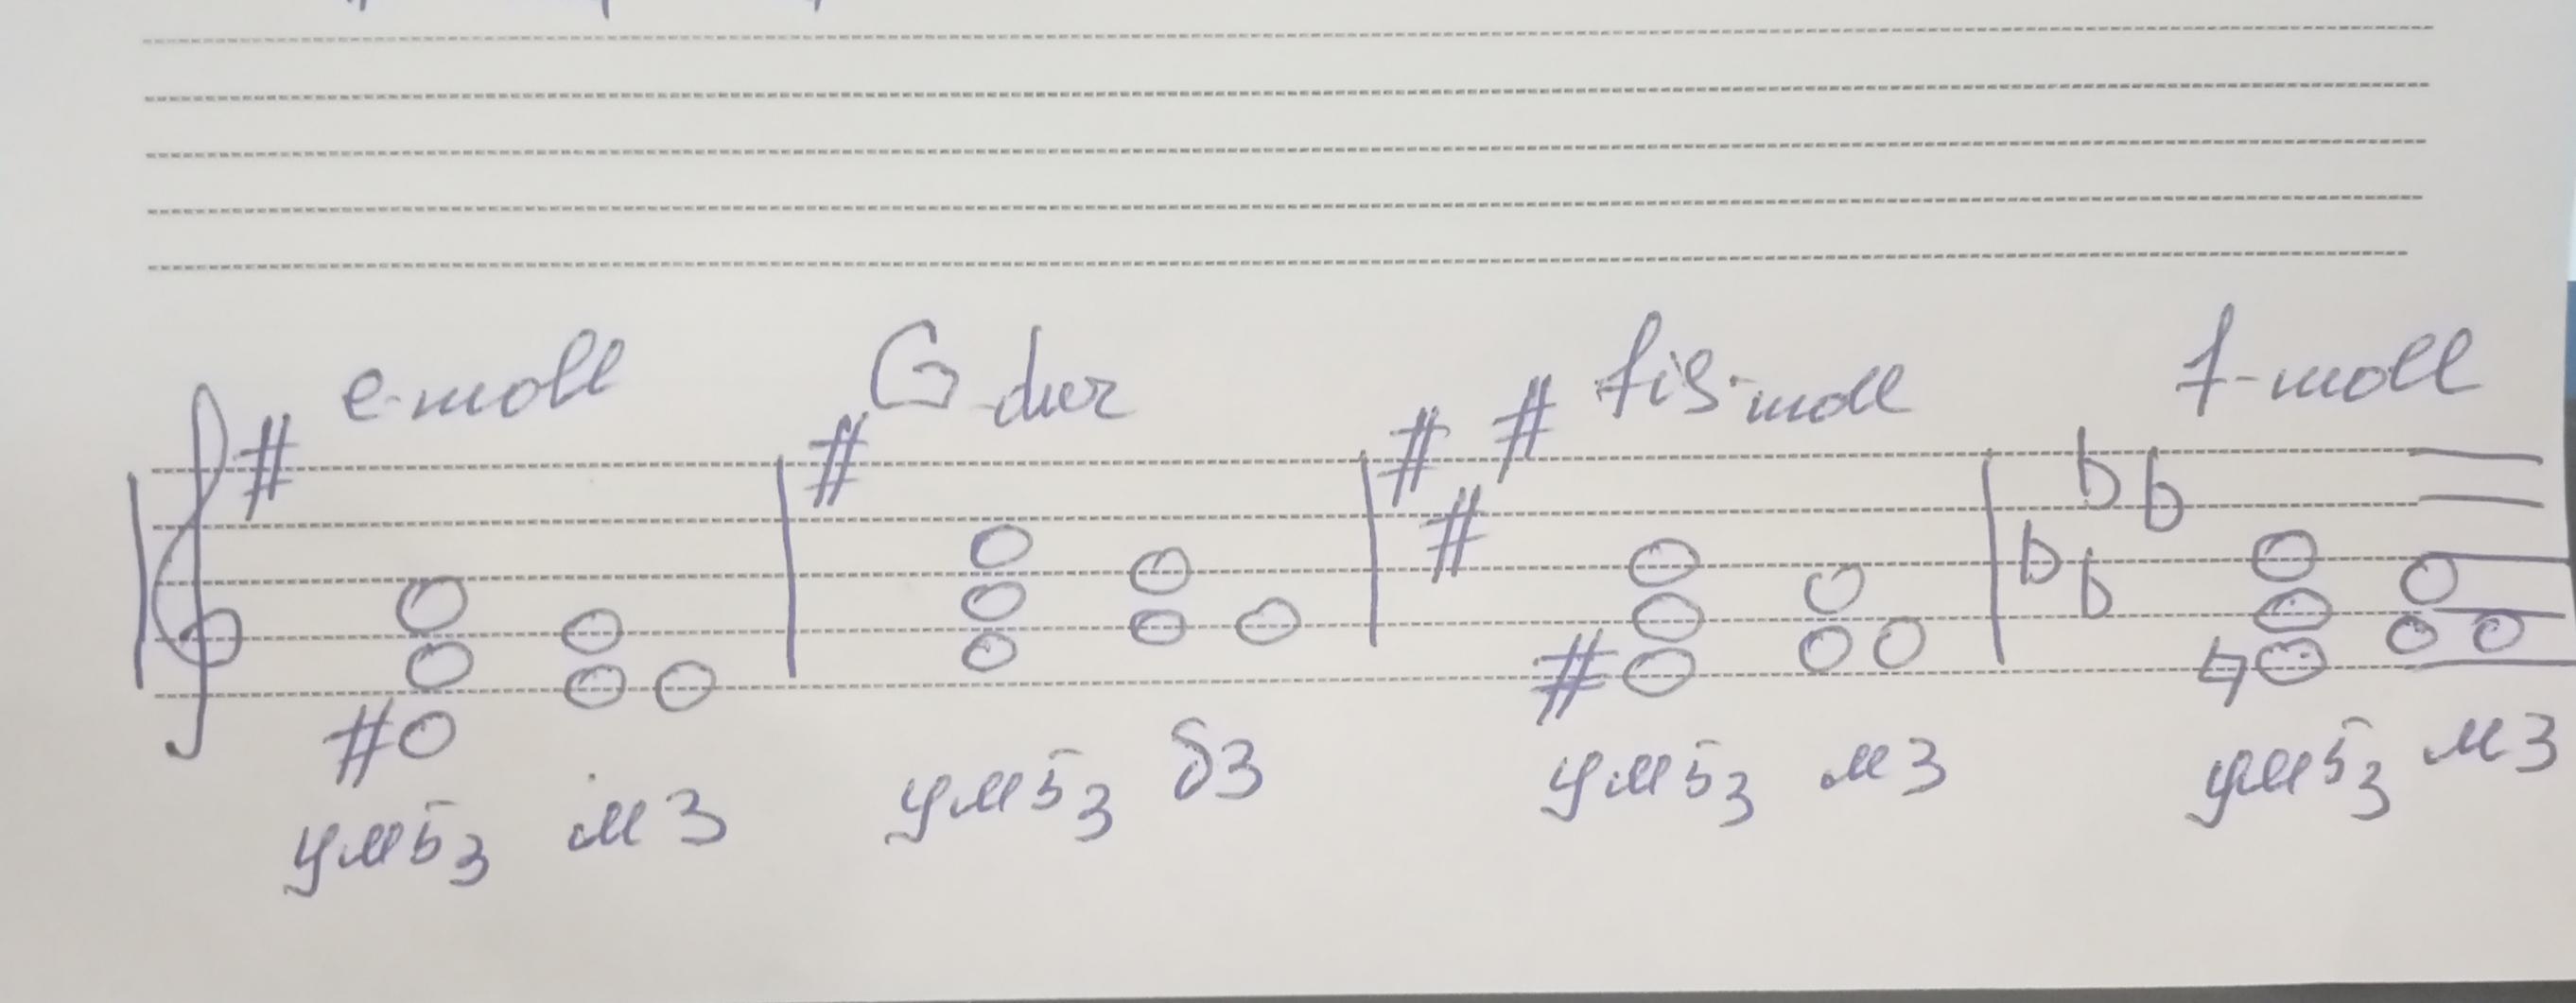 e-moll G-dur fis-moll f-moll
ум53 м3 ум53 б3 ум53 м3 ум53 м3